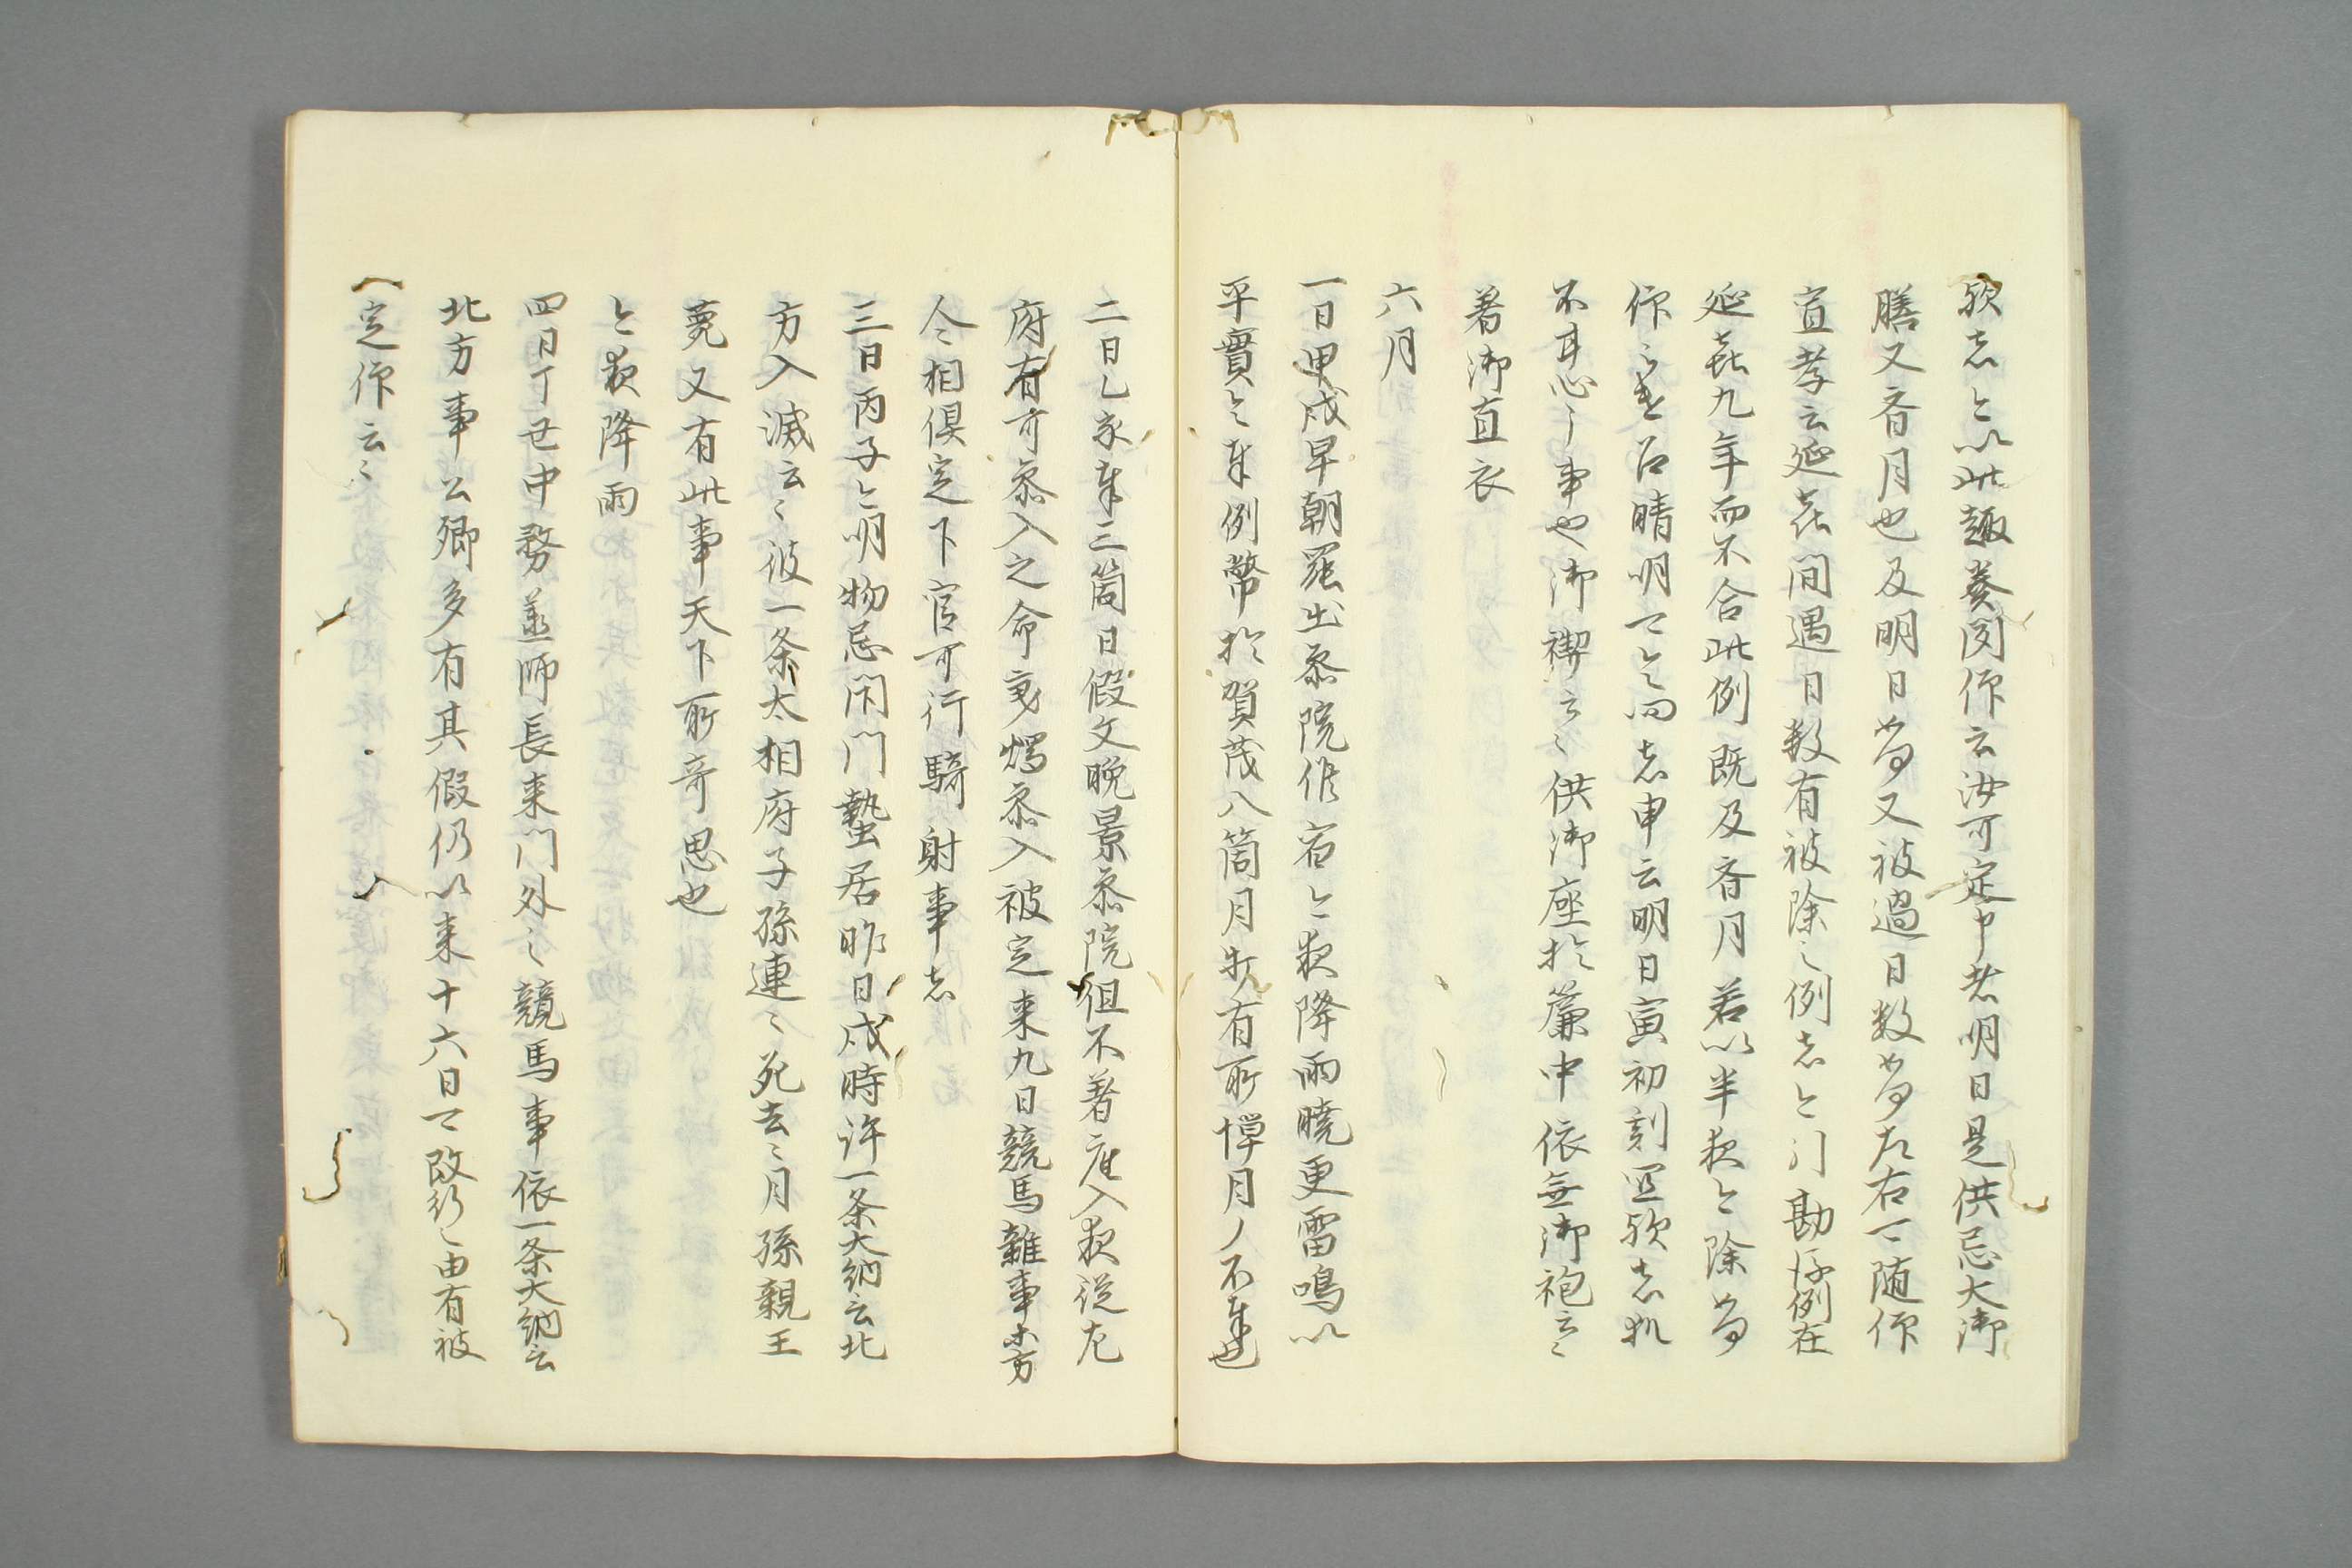 欤者今以此趣奏聞仰云汝可定申者明日是供忌火御
膳又斎月也及明日為又被過日数為左右可随仰
宣孝云延㐂間過日数有被除之例者今日勘件例在
延㐂九年而不合此例既及斎月若以半夜今除為
仰云遣召晴明可令問者申云明日寅初刻宜欤者
不甘心之事也御禊云々供御座於簾中依無御袍云々
著御直衣
六月
一日甲戌早朝罷出参院候宿今夜降雨暁更雷鳴以
平實令奉例幣於賀茂八箇月 有所憚月不奉也
二日乙亥奉三箇日假文晩景参院但不著座入夜従左
府有可参入之命 参入被定来九日競馬雑事等方
今相倶定下官可行騎射事者
三日丙子今明物忌閇門蟄居昨日戌時許一条大納云北
方入滅云々彼一条太相府子孫連々死去々月孫親王
薨又有此事天下所奇思也
今夜降雨
四日丁丑中務丞師長来門外云競馬事依一条大納云
北方事公卿多有其假仍以来十六日可改行之由有被
定仰云々